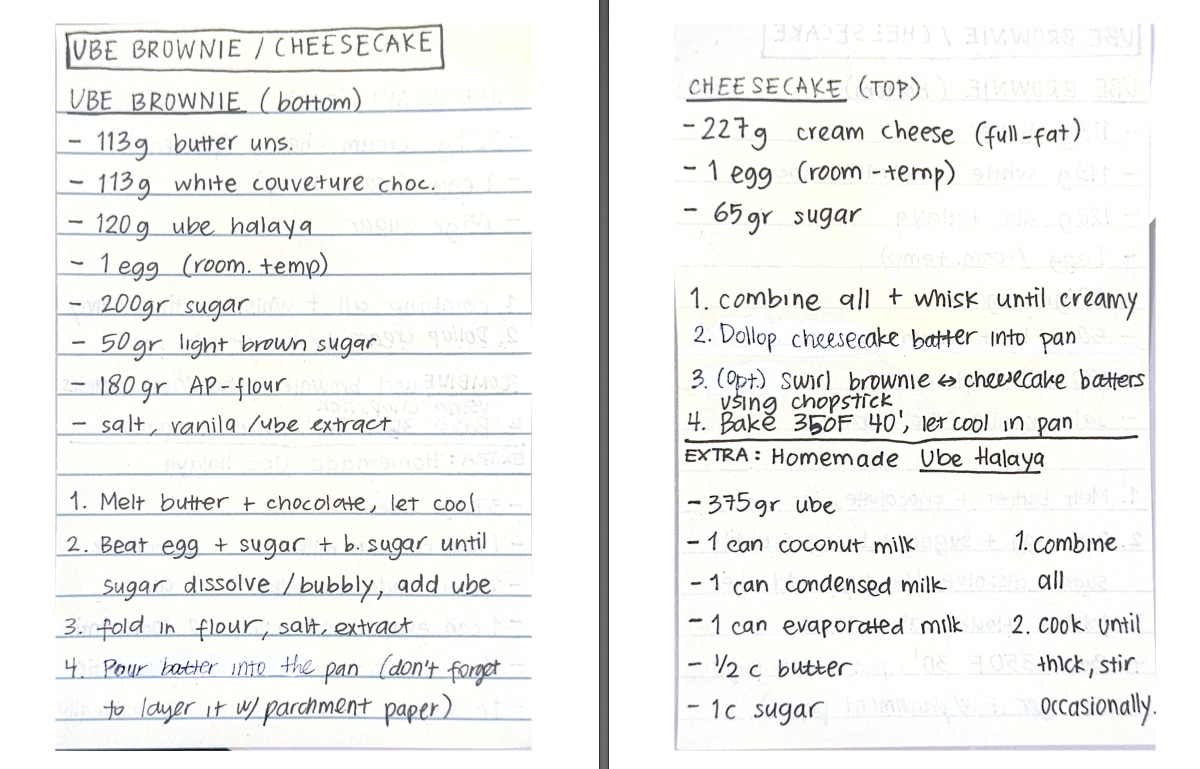 UBE BROWNIE / CHEESECAKE
UBE BROWNIE (bottom)
- 113g butter uns.
- 113g white couveture choc.
- 120g ube halaya
- 1 egg (room. temp)
- 200gr sugar
- 50gr light brown sugar
- 180gr AP-flour
- salt, vanila /ube extract
1. Melt butter + chocolate, let cool
2. Beat egg + sugar + b. sugar until
sugar dissolve / bubbly, add ube
3. fold in flour, salt, extract
4. Pour batter into the pan (don't forget
to layer it w/ parchment paper)
CHEESECAKE (TOP)
- 227g cream cheese (full-fat)
- 1 egg (room-temp)
- 65gr sugar
1. combine all + whisk until creamy
2. Dollop cheesecake batter into pan
3. (opt.) swirl brownie ↔ cheesecake batters
using chopstick
4. Bake 350F 40', let cool in pan
EXTRA: Homemade Ube Halaya
- 375gr ube
- 1 can coconut milk
- 1 can condensed milk
- 1 can evaporated milk
- 1/2 c butter
- 1c sugar
1. combine
all
2. cook until
thick, stir
occasionally.